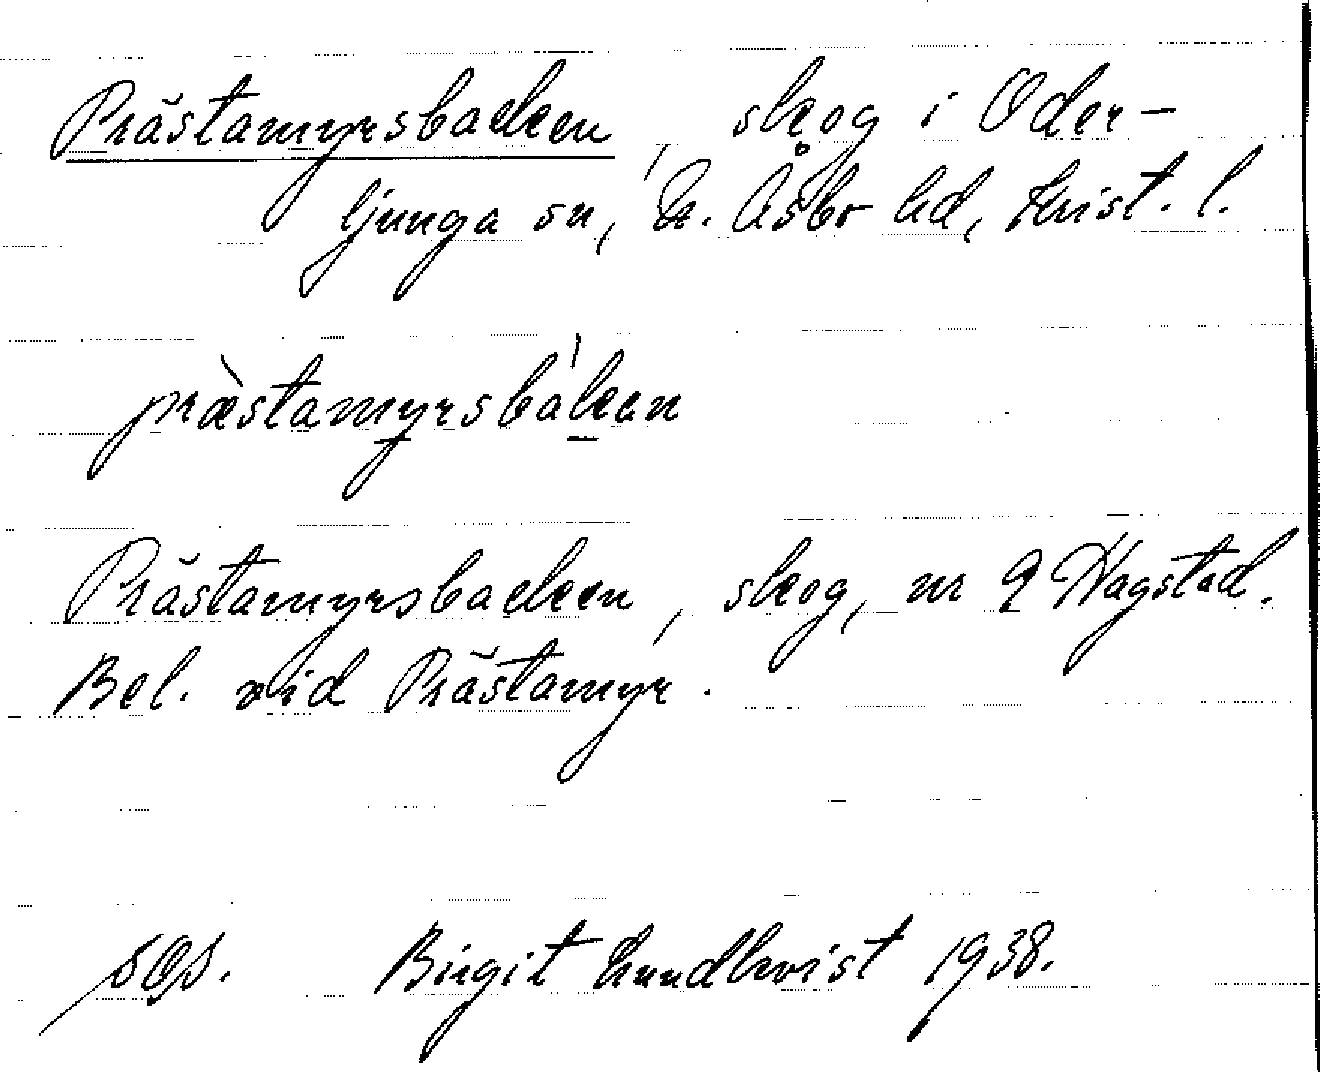 Prästamyrsbacken, skog i Oder-
ljunga sn, N. Åsbo hd, Krist. l.
præ̀stamyrsbáken
Prästamyrsbacken, skog, nr 2 Hagstad.
Bel. vid Prästamyr.
Birgit Lundkvist 1938.